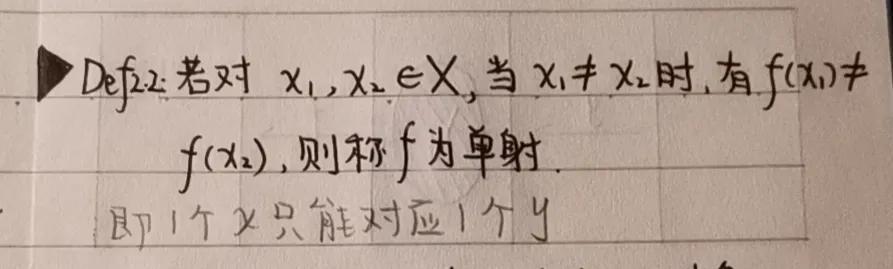 ▶Def2.2: 若对 x₁, x₂ ∈ X, 当 x₁ ≠ x₂ 时, 有 f(x₁) ≠
f(x₂), 则称 f 为单射.
即 1 个 x 只能对应 1 个 y